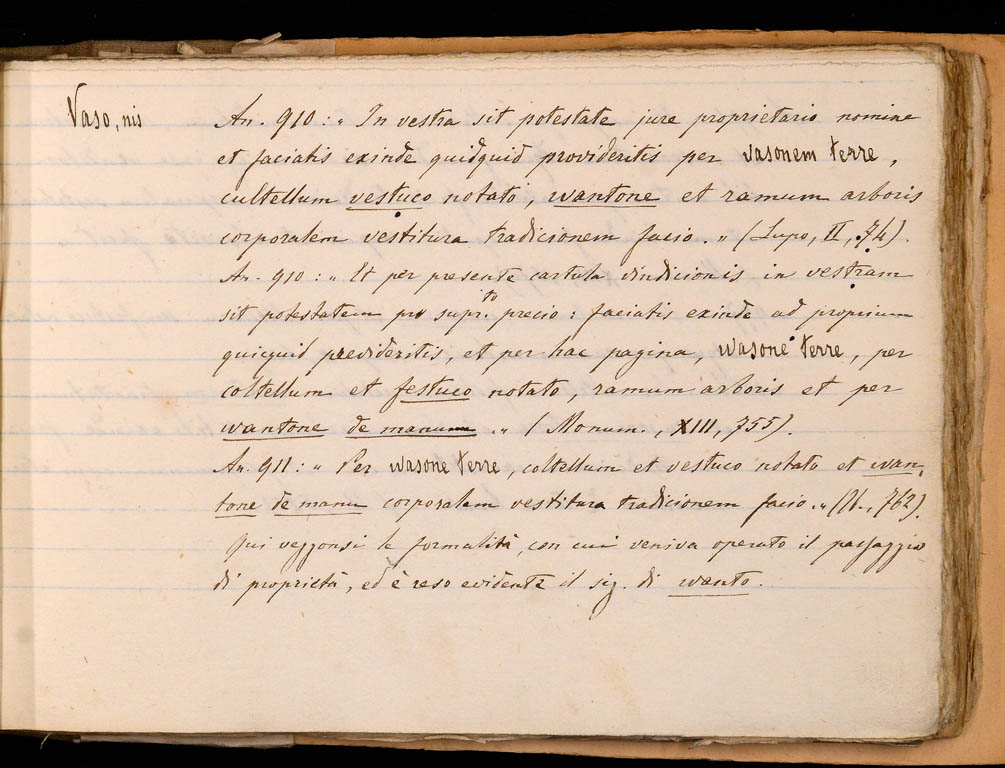 Vaso, nis
An. 910: „ In vestra sit potestate jure proprietario nomine
et faciatis exinde quidquid provideritis per vasonem terre,
cultellum vestuco notato, wantone et ramum arboris
corporalem vestitura tradicionem facio. „ (Lupo, II, 74)
An. 910: „ Et per presente cartula vindicionis in vestram
sit potestatem pro supr.to precio: faciatis exinde ad proprium
quicquid previderitis, et per hac pagina, wasone terre, per
coltellum et festuco notato, ramum arboris et per
wantone de manum. „ (Monum., XIII, 755).
An. 911: „ Per wasone terre, coltellum et vestuco notato et wan-
tone de manu corporalem vestitura tradicionem facio. „ (Ib., 762).
Qui veggonsi le formalità, con cui veniva operato il passaggio
di proprietà, ed è reso evidente il sig. di wanto.